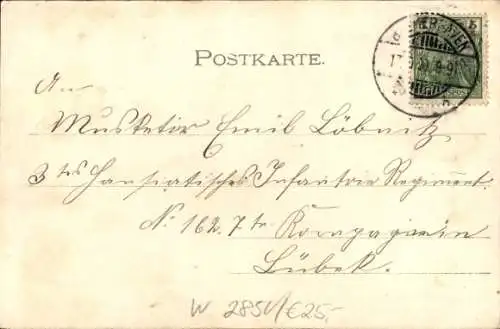 POSTKARTE.
An
Musketir Emil Löbnitz
3tes Hansiatisches Infantrie Regiment.
No. 162. 7te Kompagnie in
Lübek.
W 2851/€25,-